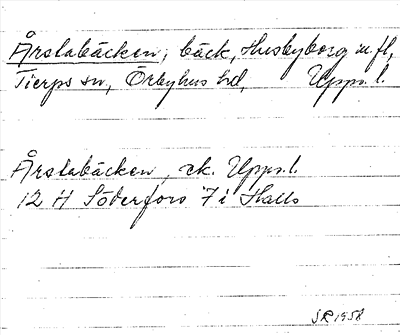 Årstabäcken; bäck, Husbyborg m.fl,
Tierps sn, Örbyhus hd, Upps.l.
Årstabäcken, ek. Upps.l.
12 H Söderfors 7 i Halls
SR 1958